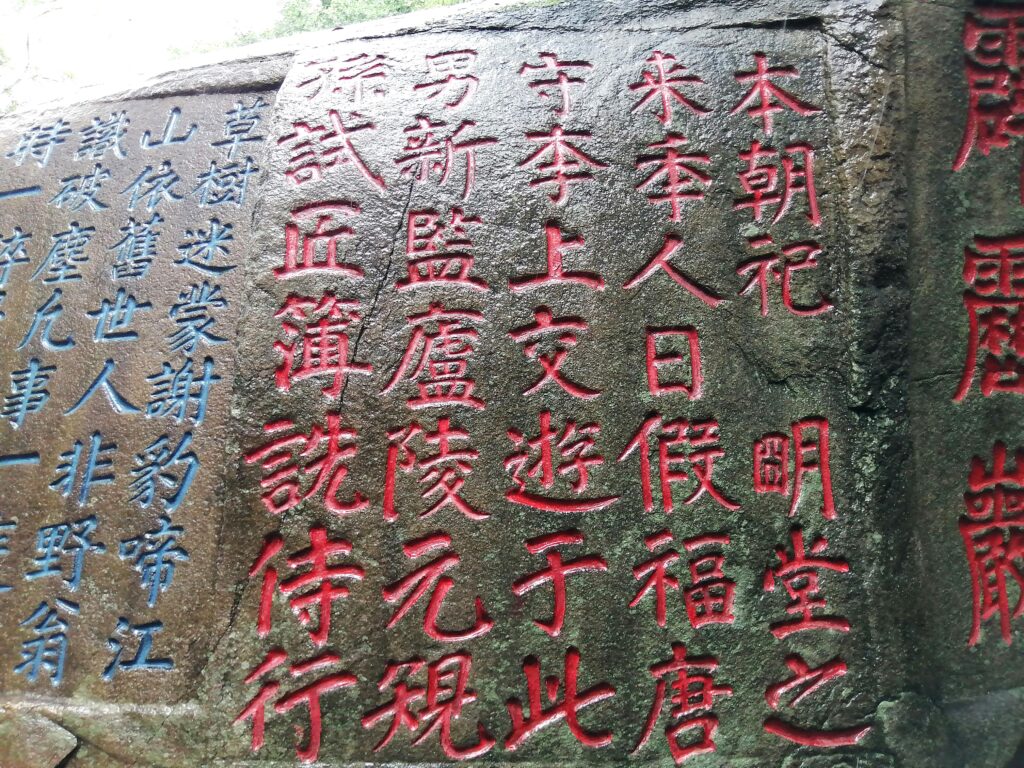 霹靂巖
本朝祀 朙堂之
来秊人日假福唐
守李上交遊于此
男新監廬陵元規
孫試匠簿詵侍行
草樹迷蒙謝豹啼江
山依舊世人非野翁
識破塵凢事一
時一醉